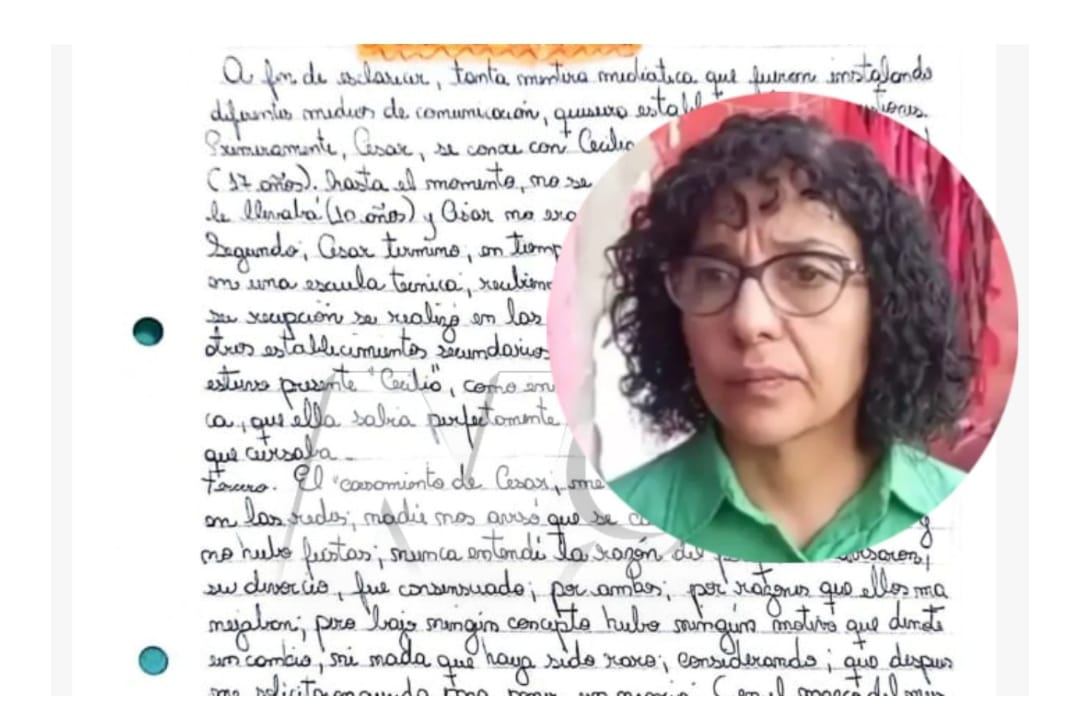 A fin de esclarecer, tanta mentira mediatica que fueron instalando
diferentes medios de comunicación, quisiera establ
Primeramente, Cesar, se conoce con Cecilia
(17 años). hasta el momento, no se
le llevaba (10 años) y Cesar no era
Segundo; Cesar termino, en tiemp
en una escuela tecnica, recibien
su recepción se realizó en los
otros establecimientos secundarios
estuvo presente "Cecilia", como en
ca, que ella sabia perfectamente
que cursaba
Tercero. El "casamiento de Cesar, me
en las redes; nadie nos avisó que se ca y
no hubo fiestas; nunca entendi la razón del
su divorcio, fue consensuado; por ambos; por razones que ellos ma
nejaban; pero bajo ningún concepto hubo ningún motivo que denote
un cambio, ni nada que haya sido raro; considerando; que despues
me